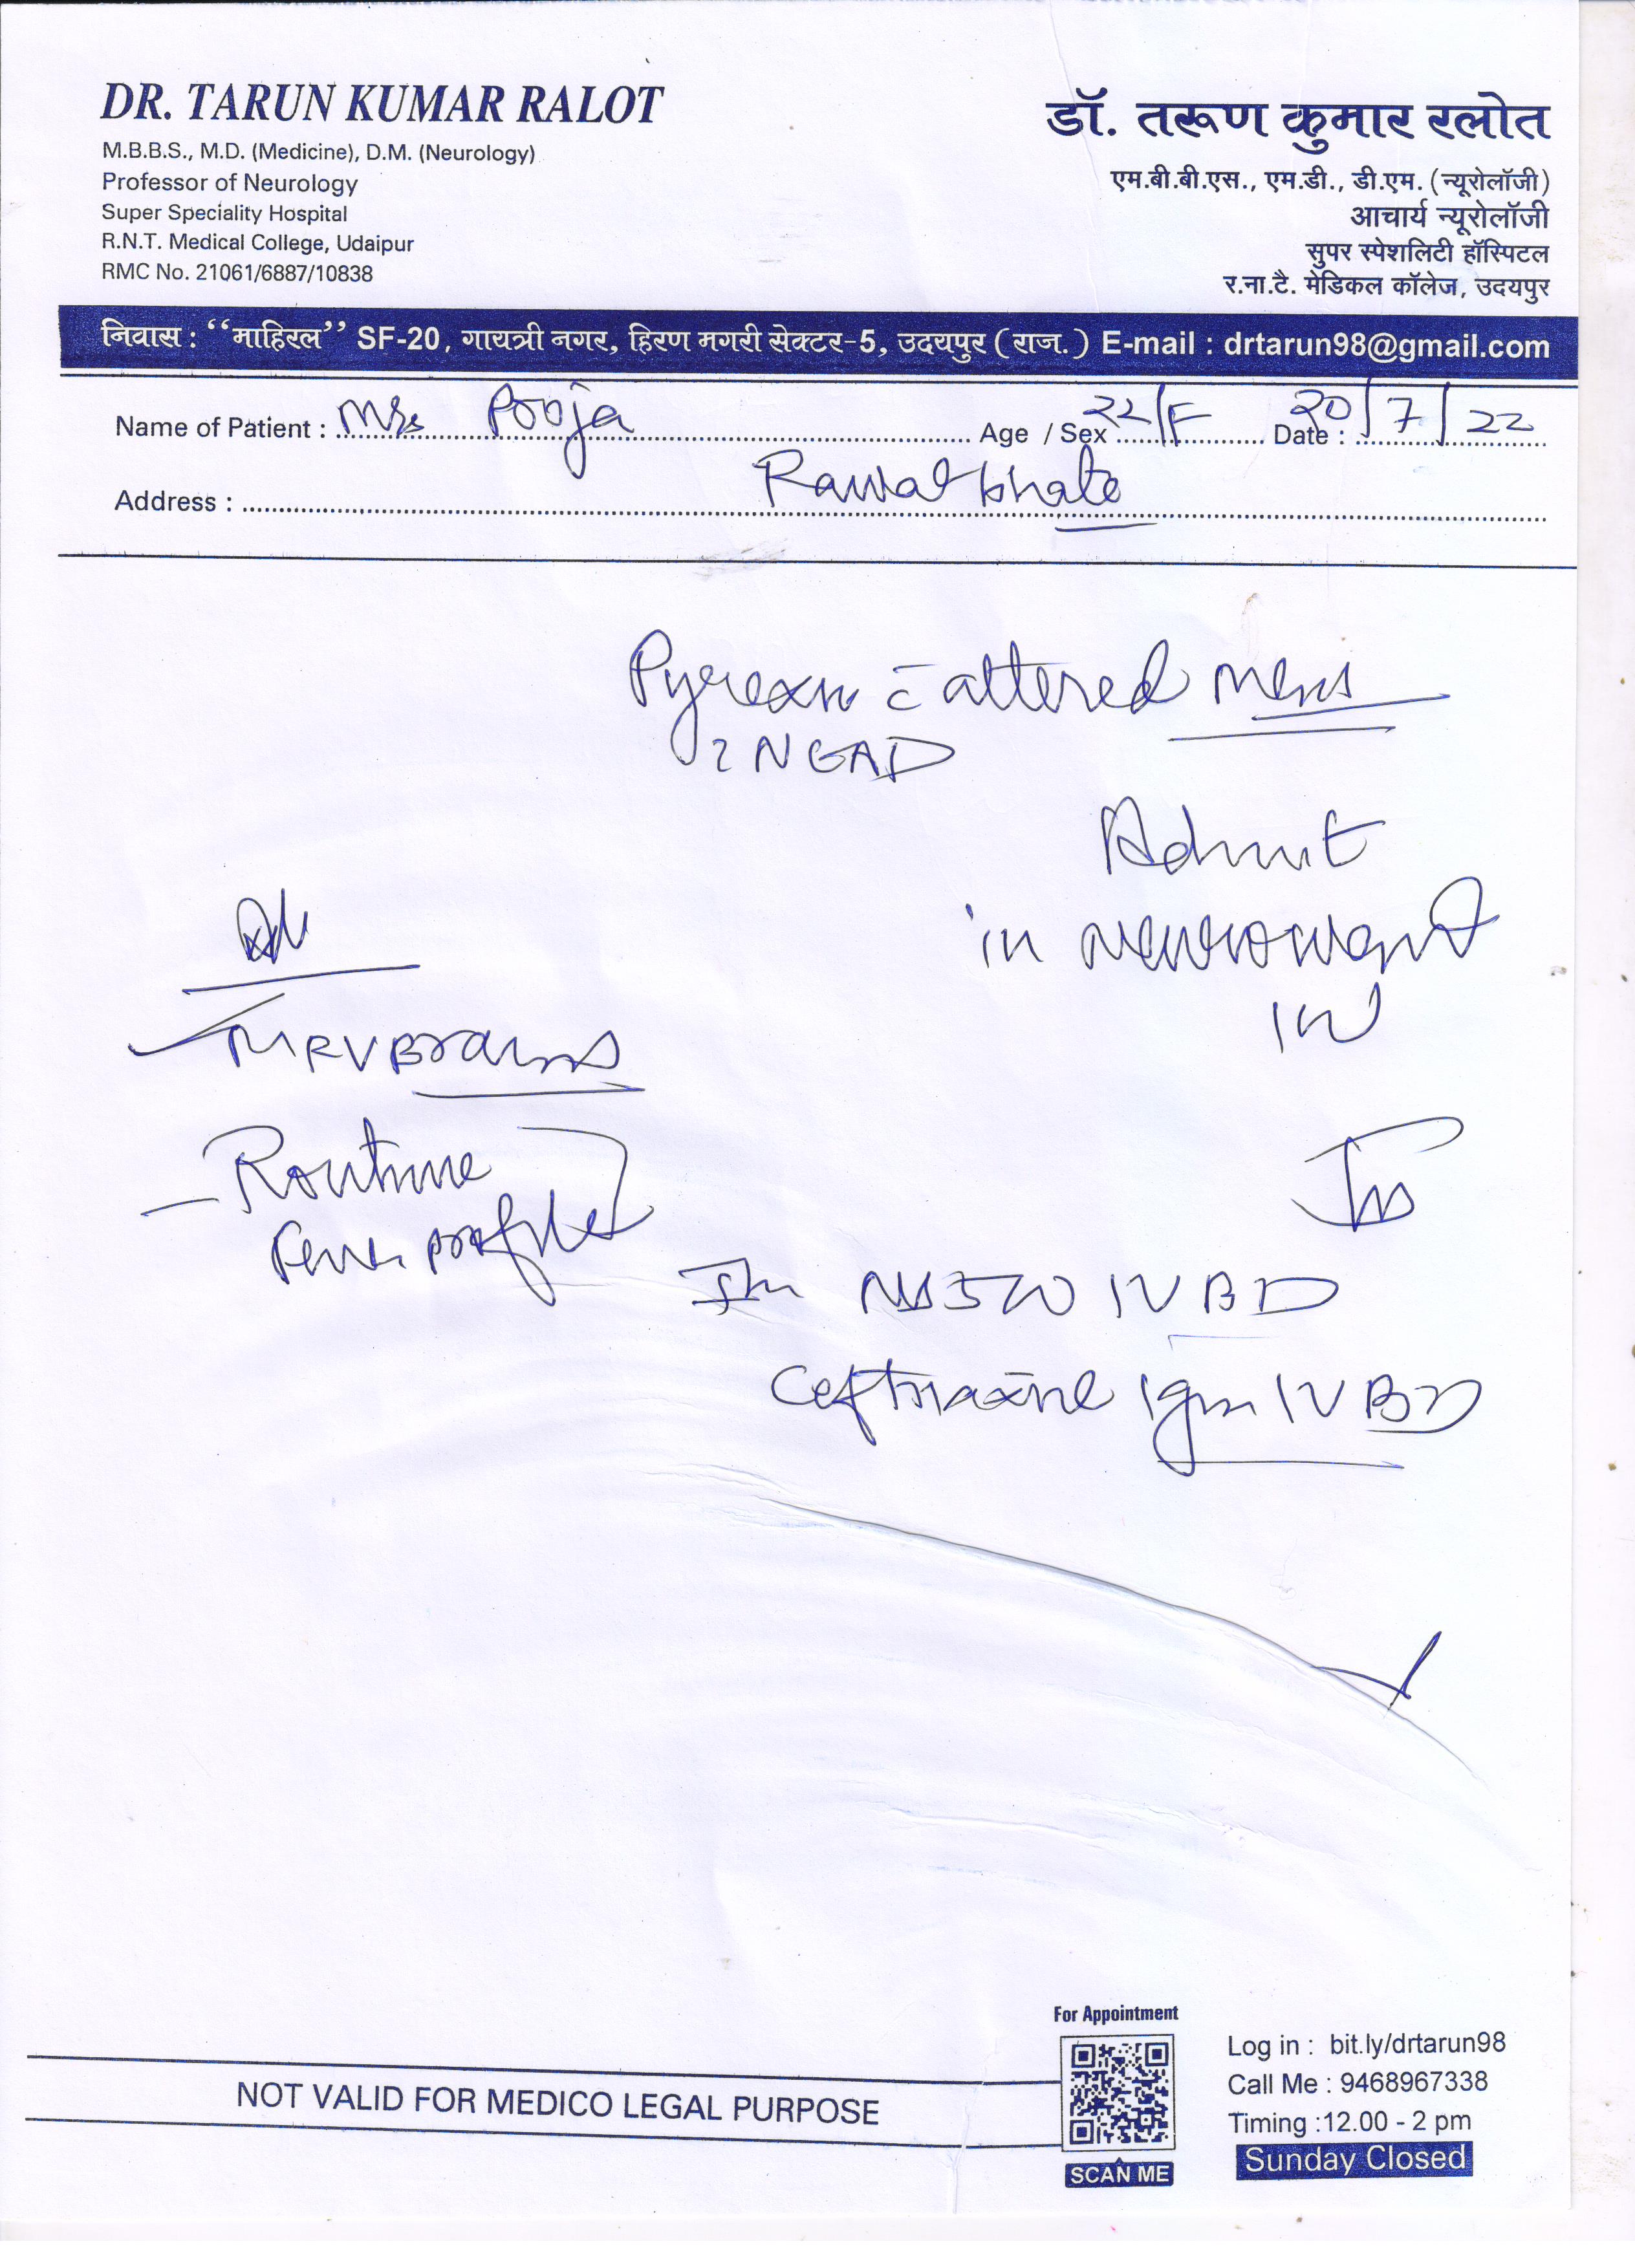 DR. TARUN KUMAR RALOT
M.B.B.S., M.D. (Medicine), D.M. (Neurology)
Professor of Neurology
Super Speciality Hospital
R.N.T. Medical College, Udaipur
RMC No. 21061/6887/10838
डॉ. तरूण कुमार रलोत
एम.बी.बी.एस., एम.डी., डी.एम. (न्यूरोलॉजी)
आचार्य न्यूरोलॉजी
सुपर स्पेशलिटी हॉस्पिटल
र.ना.टै. मेडिकल कॉलेज, उदयपुर
निवास : “माहिरल” SF-20, गायत्री नगर, हिरण मगरी सेक्टर-5, उदयपुर (राज.) E-mail : drtarun98@gmail.com
Name of Patient : Mrs Pooja Age / Sex 22/F Date : 20/7/22
Address : Rawatbhata
Pyrexia c altered
? NGAD
Admit
in neuroward
Adv
MRV Brain
- Routine
Fever profile
IV BD
Ceftriaxone 1gm IV BD
For Appointment
SCAN ME
Log in : bit.ly/drtarun98
Call Me : 9468967338
Timing :12.00 - 2 pm
Sunday Closed
NOT VALID FOR MEDICO LEGAL PURPOSE